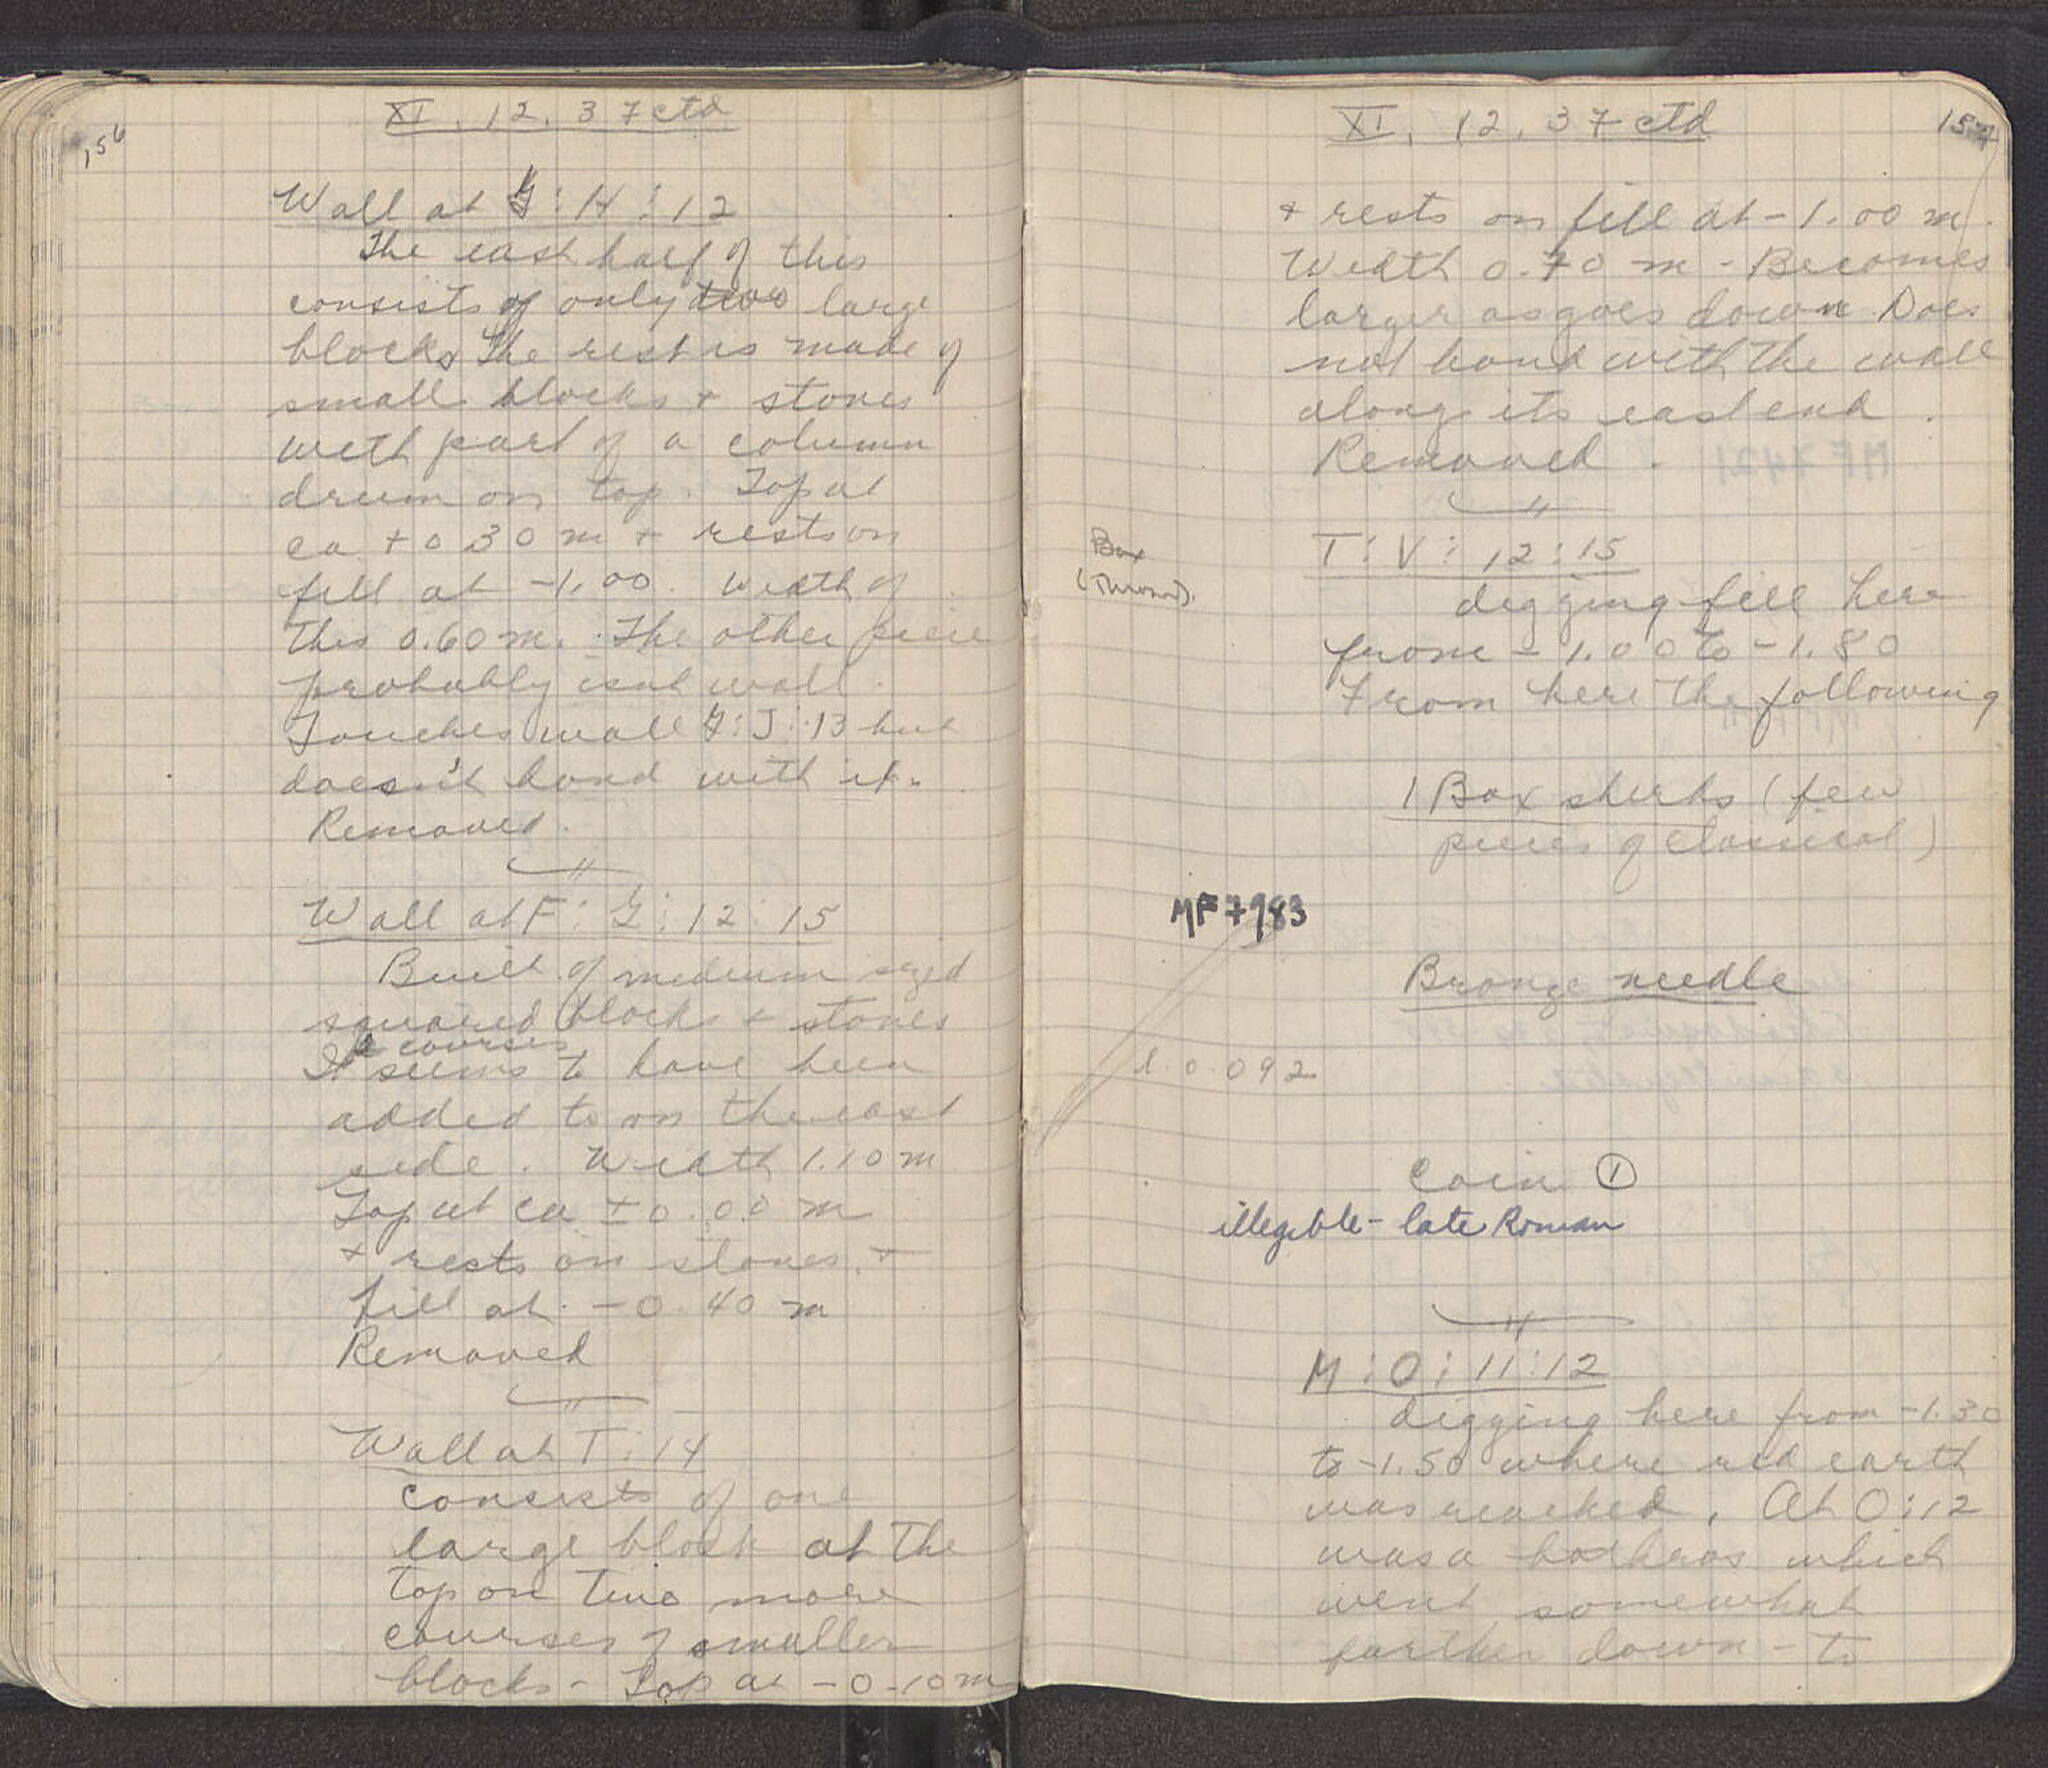 156
XI. 12. 37 ctd
Wall at G:H:12
The east half of this
consists of only two large
blocks The rest is made of
small blocks + stones
with part of a column
drum on top. Top at
ca +0.30 m + rests on
fill at -1.00. Width of
this 0.60 m. The other piece
probably isnt wall.
Touches wall G:J:13 but
doesn't bond with it.
Removed.
Wall at F:G:12:15
Built of medium sized
squared blocks + stones
courses
It seems to have been
added to on the east
side. Width 1.10 m
Top at ca ±0.00 m
+ rests on stones +
fill at -0.40 m
Removed
Wall at T:14
consists of one
large block at the
top on two more
courses of smaller
blocks - Top at -0.10 m
XI. 12. 37 ctd
157
+ rests on fill at -1.00 m.
Width 0.70 m - Becomes
larger as goes down Does
not bond with the wall
along its east end.
Removed.
T:V:12:15
Box
(Thrown).
digging fill here
from -1.00 to -1.80
From here the following
1 Box sherds (few
pieces of Classical)
MF 7983
Bronze needle
l. 0.092
Coin ①
illegible - late Roman
M:O:11:12
digging here from -1.30
to -1.50 where red earth
was reached. At O:12
was a bothros which
went somewhat
farther down - to